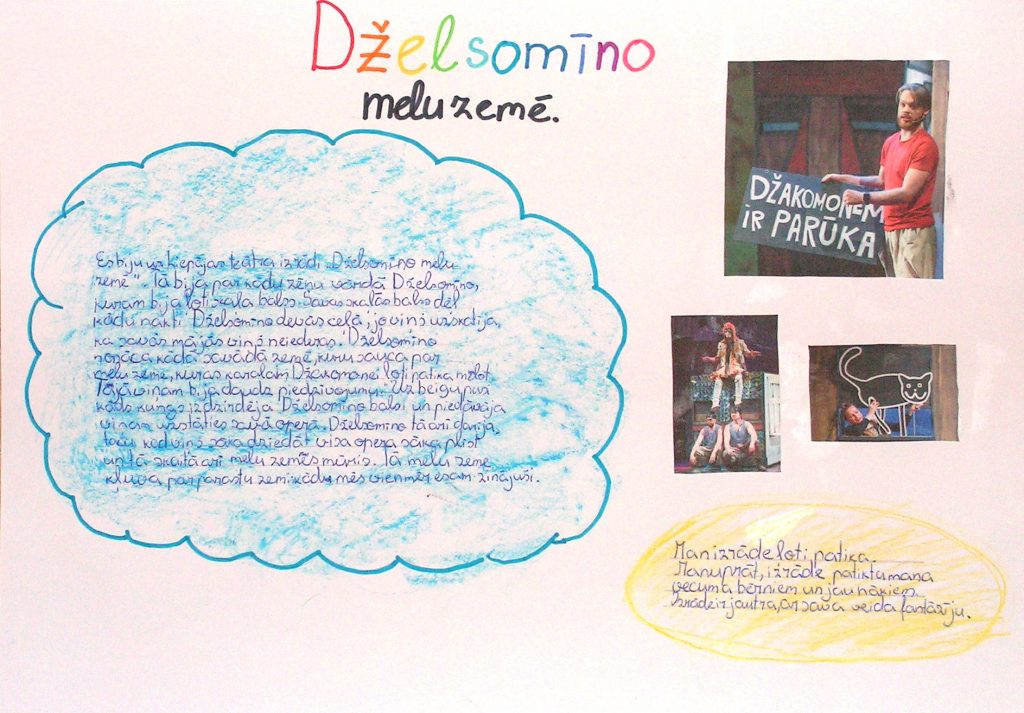 Dželsomīno
melu zemē.
DŽAKOMONEM
IR PARŪKA
Es biju uz Liepājas teātra izrādi „Dželsomīno melu
zemē". Tā bija par kādu zēnu vārdā Dželsomīno,
kuram bija ļoti skaļa balss. Savas skaļās balss dēļ
kādu nakti Dželsomīno devās ceļā, jo viņš uzskatīja,
ka savās mājās viņš neiederas. Dželsomīno
nonāca kādā savādā zemē, kuru sauca par
melu zemi, kuras karalim Džakomonei ļoti patika melot.
Tajā viņam bija daudz piedzīvojumu. Uz beigu pusi
kāds kungs izdzirdēja Dželsomīno balsi un piedāvāja
viņam uzstāties savā operā. Dželsomīno tā arī darīja,
taču kad viņš sāka dziedāt visa opera sāka plīst
un tā skaitā arī melu zemes mūris. Tā melu zeme
kļuva par parastu zemi kādu mēs vienmēr esam zinājuši.
Man izrāde ļoti patika.
Manuprāt, izrāde patiktu mana
vecuma bērniem un jaunākiem.
Izrāde ir jautra, ar sava veida fantāziju.